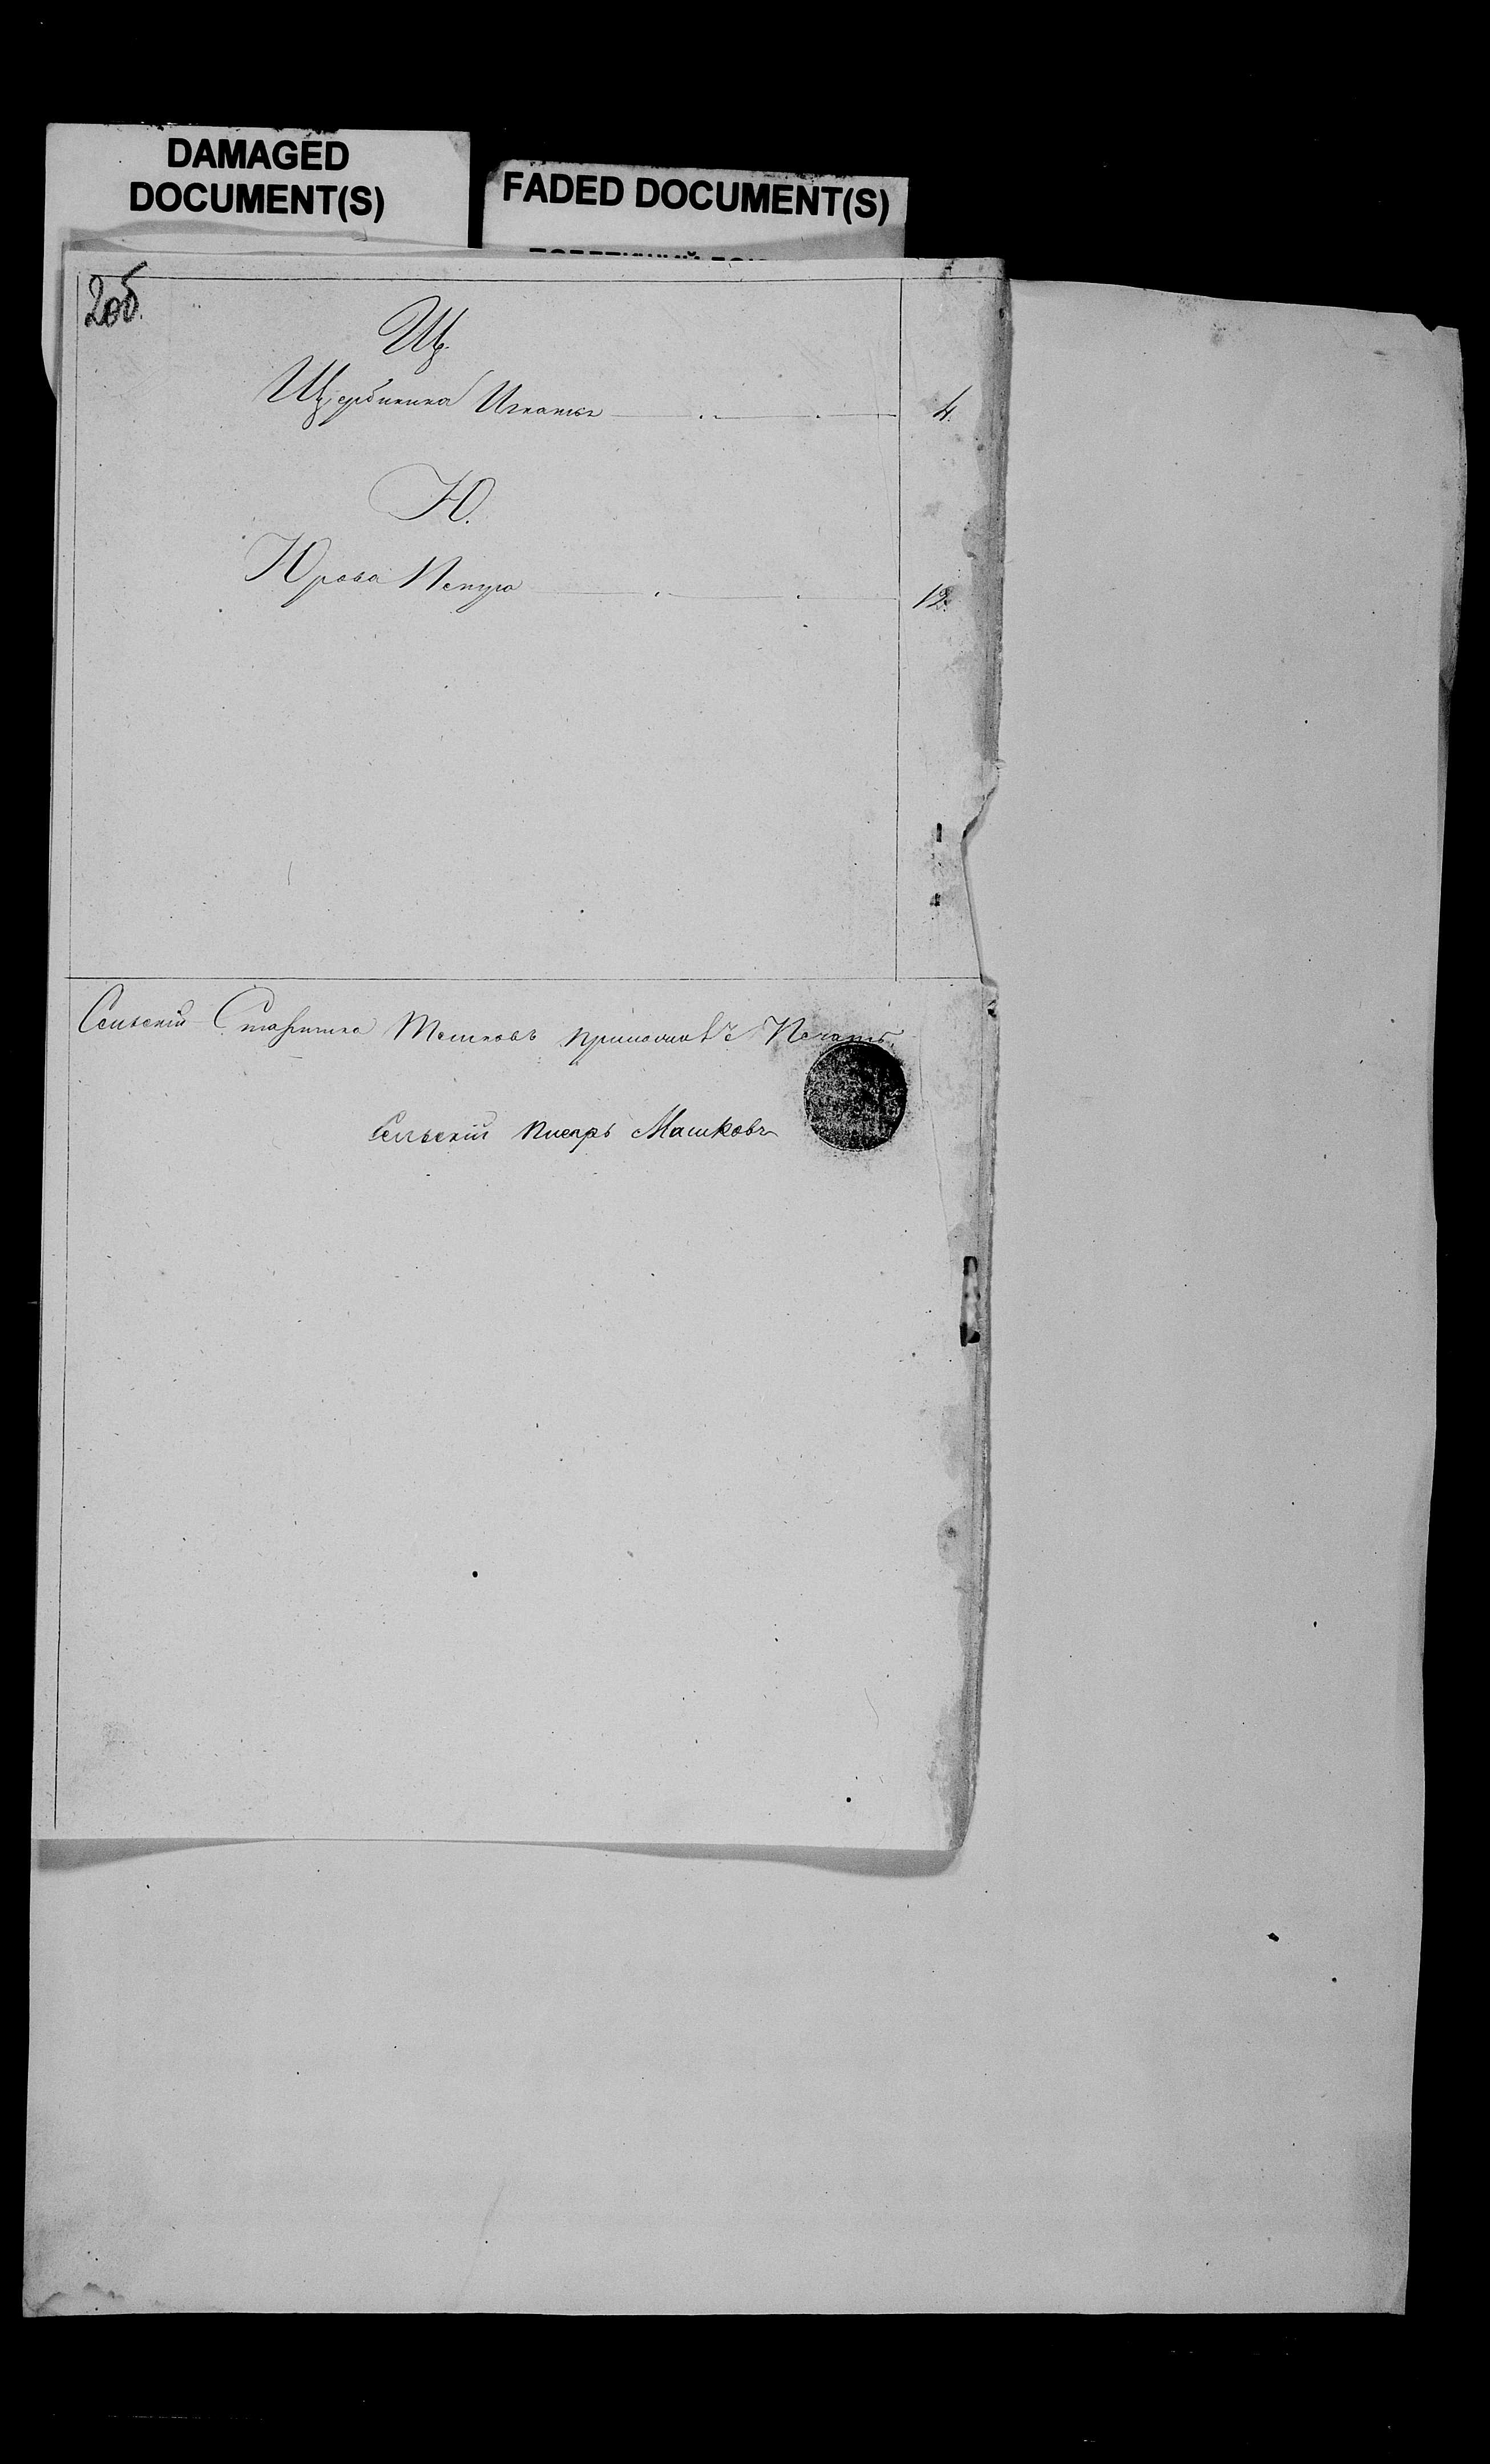 DAMAGED
DOCUMENT(S)
FADED DOCUMENT(S)
Щ.
Щербинина Игнатья 4.
Ю.
Юрова Петра 12.
Сельскій Старшина приложилъ Печать.
Сельскій писарь Машковъ